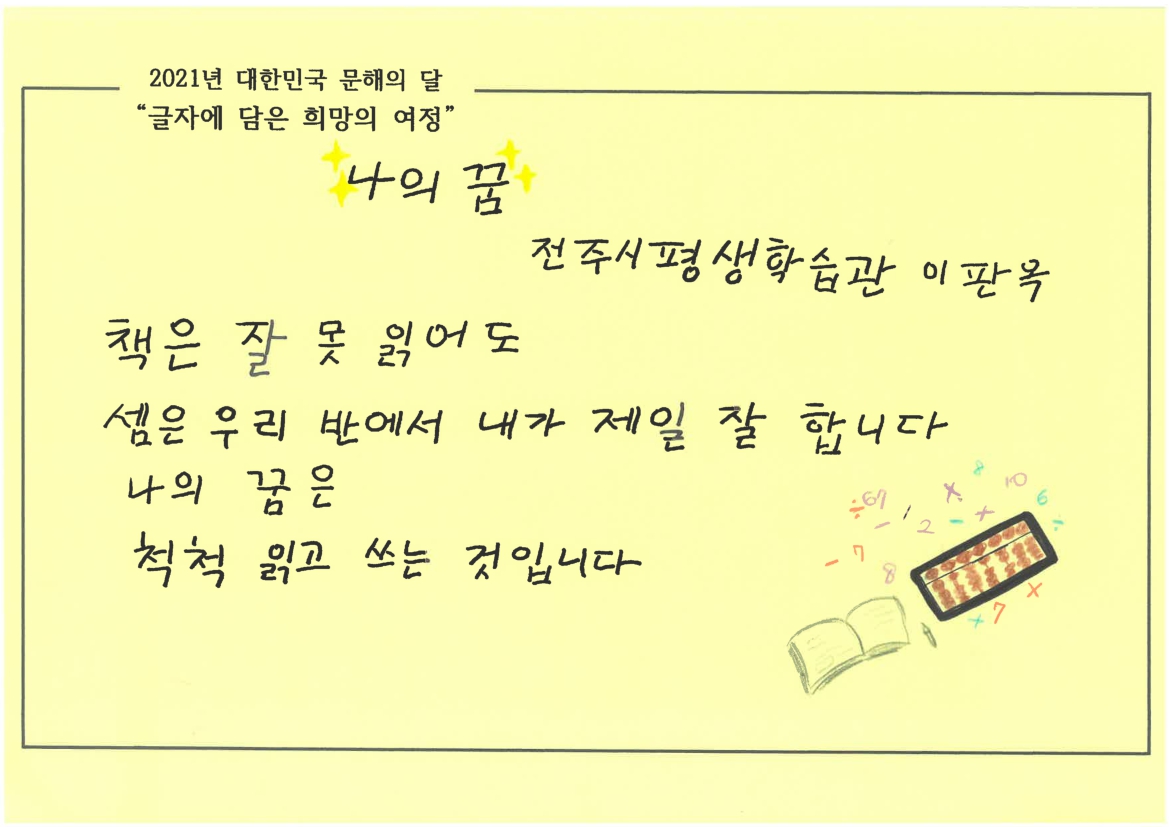 2021년 대한민국 문해의 달
“글자에 담은 희망의 여정”
나의 꿈
전주시평생학습관 이판옥
책은 잘 못 읽어도
셈은 우리 반에서 내가 제일 잘 합니다
나의 꿈은
척척 읽고 쓰는 것입니다
8
10
÷ 67 × 6
- 1 2 - + ÷
- 7
8
×
+ 7